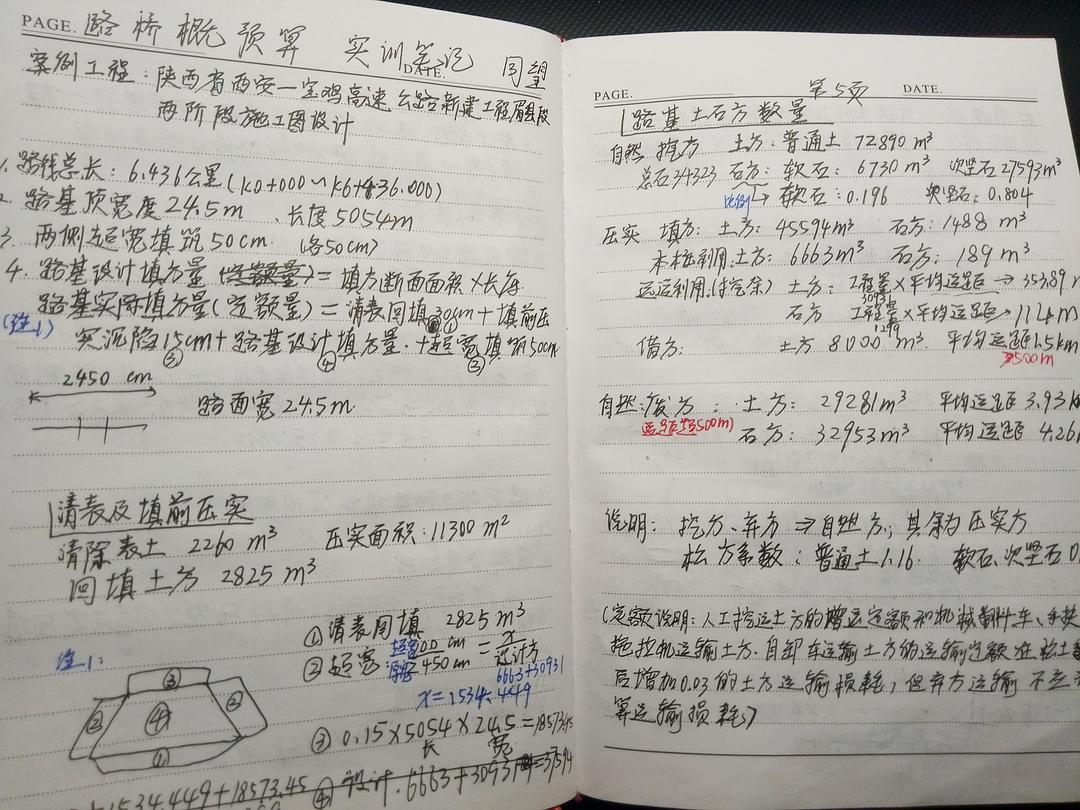 PAGE. 路桥概预算 实训笔记 同望
DATE.
案例工程：陕西省西安—宝鸡高速公路新建工程眉县段
两阶段施工图设计
1. 路线总长：6.436公里(K0+000～K6+436.000)
2. 路基顶宽度24.5m、长度5054m
3. 两侧超宽填筑50cm. (各50cm)
4. 路基设计填方量 = 填方断面面积×长度
路基实际填方量(定额量) = 清表回填30cm+填前压
(注1) 实沉降15cm+路基设计填方量.+超宽填筑50cm
① ③ ④ ②
2450 cm
路面宽24.5m
清表及填前压实
清除表土 2260 m³ 压实面积：11300 m²
回填土方 2825 m³
① 清表回填 2825 m³
注1: ② 超宽 cm = x
超宽 路宽 2450 cm 设计方
6663+30931
x=1534.449
③ ② ④ ② ①
③ 0.15×5054×24.5=18573.45
长 宽
+1534.449+18573.45 ④ 设计.6663+30931=37594
PAGE. 第5页 DATE.
路基土石方数量
自然 挖方 土方：普通土 72890 m³
总石34323 石方：软石：6730 m³ 次坚石27593m³
比例→ 软石：0.196 次坚石：0.804
压实 填方：土方：45594m³ 石方：1488 m³
本桩利用：土方：6663m³ 石方：189 m³
远运利用.(挖余) 土方：工程量×平均运距→353.89m
30931
石方 工程量×平均运距→114m
1299
借方： 土方 8000 m³. 平均运距1.5km
>500m
自然：废方：土方：29281m³ 平均运距3.93k
运距超500m) 石方：32953m³ 平均运距 4.26
说明：挖方、弃方⇒自然方，其余为压实方
松方系数：普通土1.16. 软石、次坚石0.
(定额说明：人工挖运土方的增运定额和机械翻斗车、手扶
拖拉机运输土方.自卸车运输土方的运输定额在松土
后增加0.03的土方运输损耗，但弃方运输不
算运输损耗)